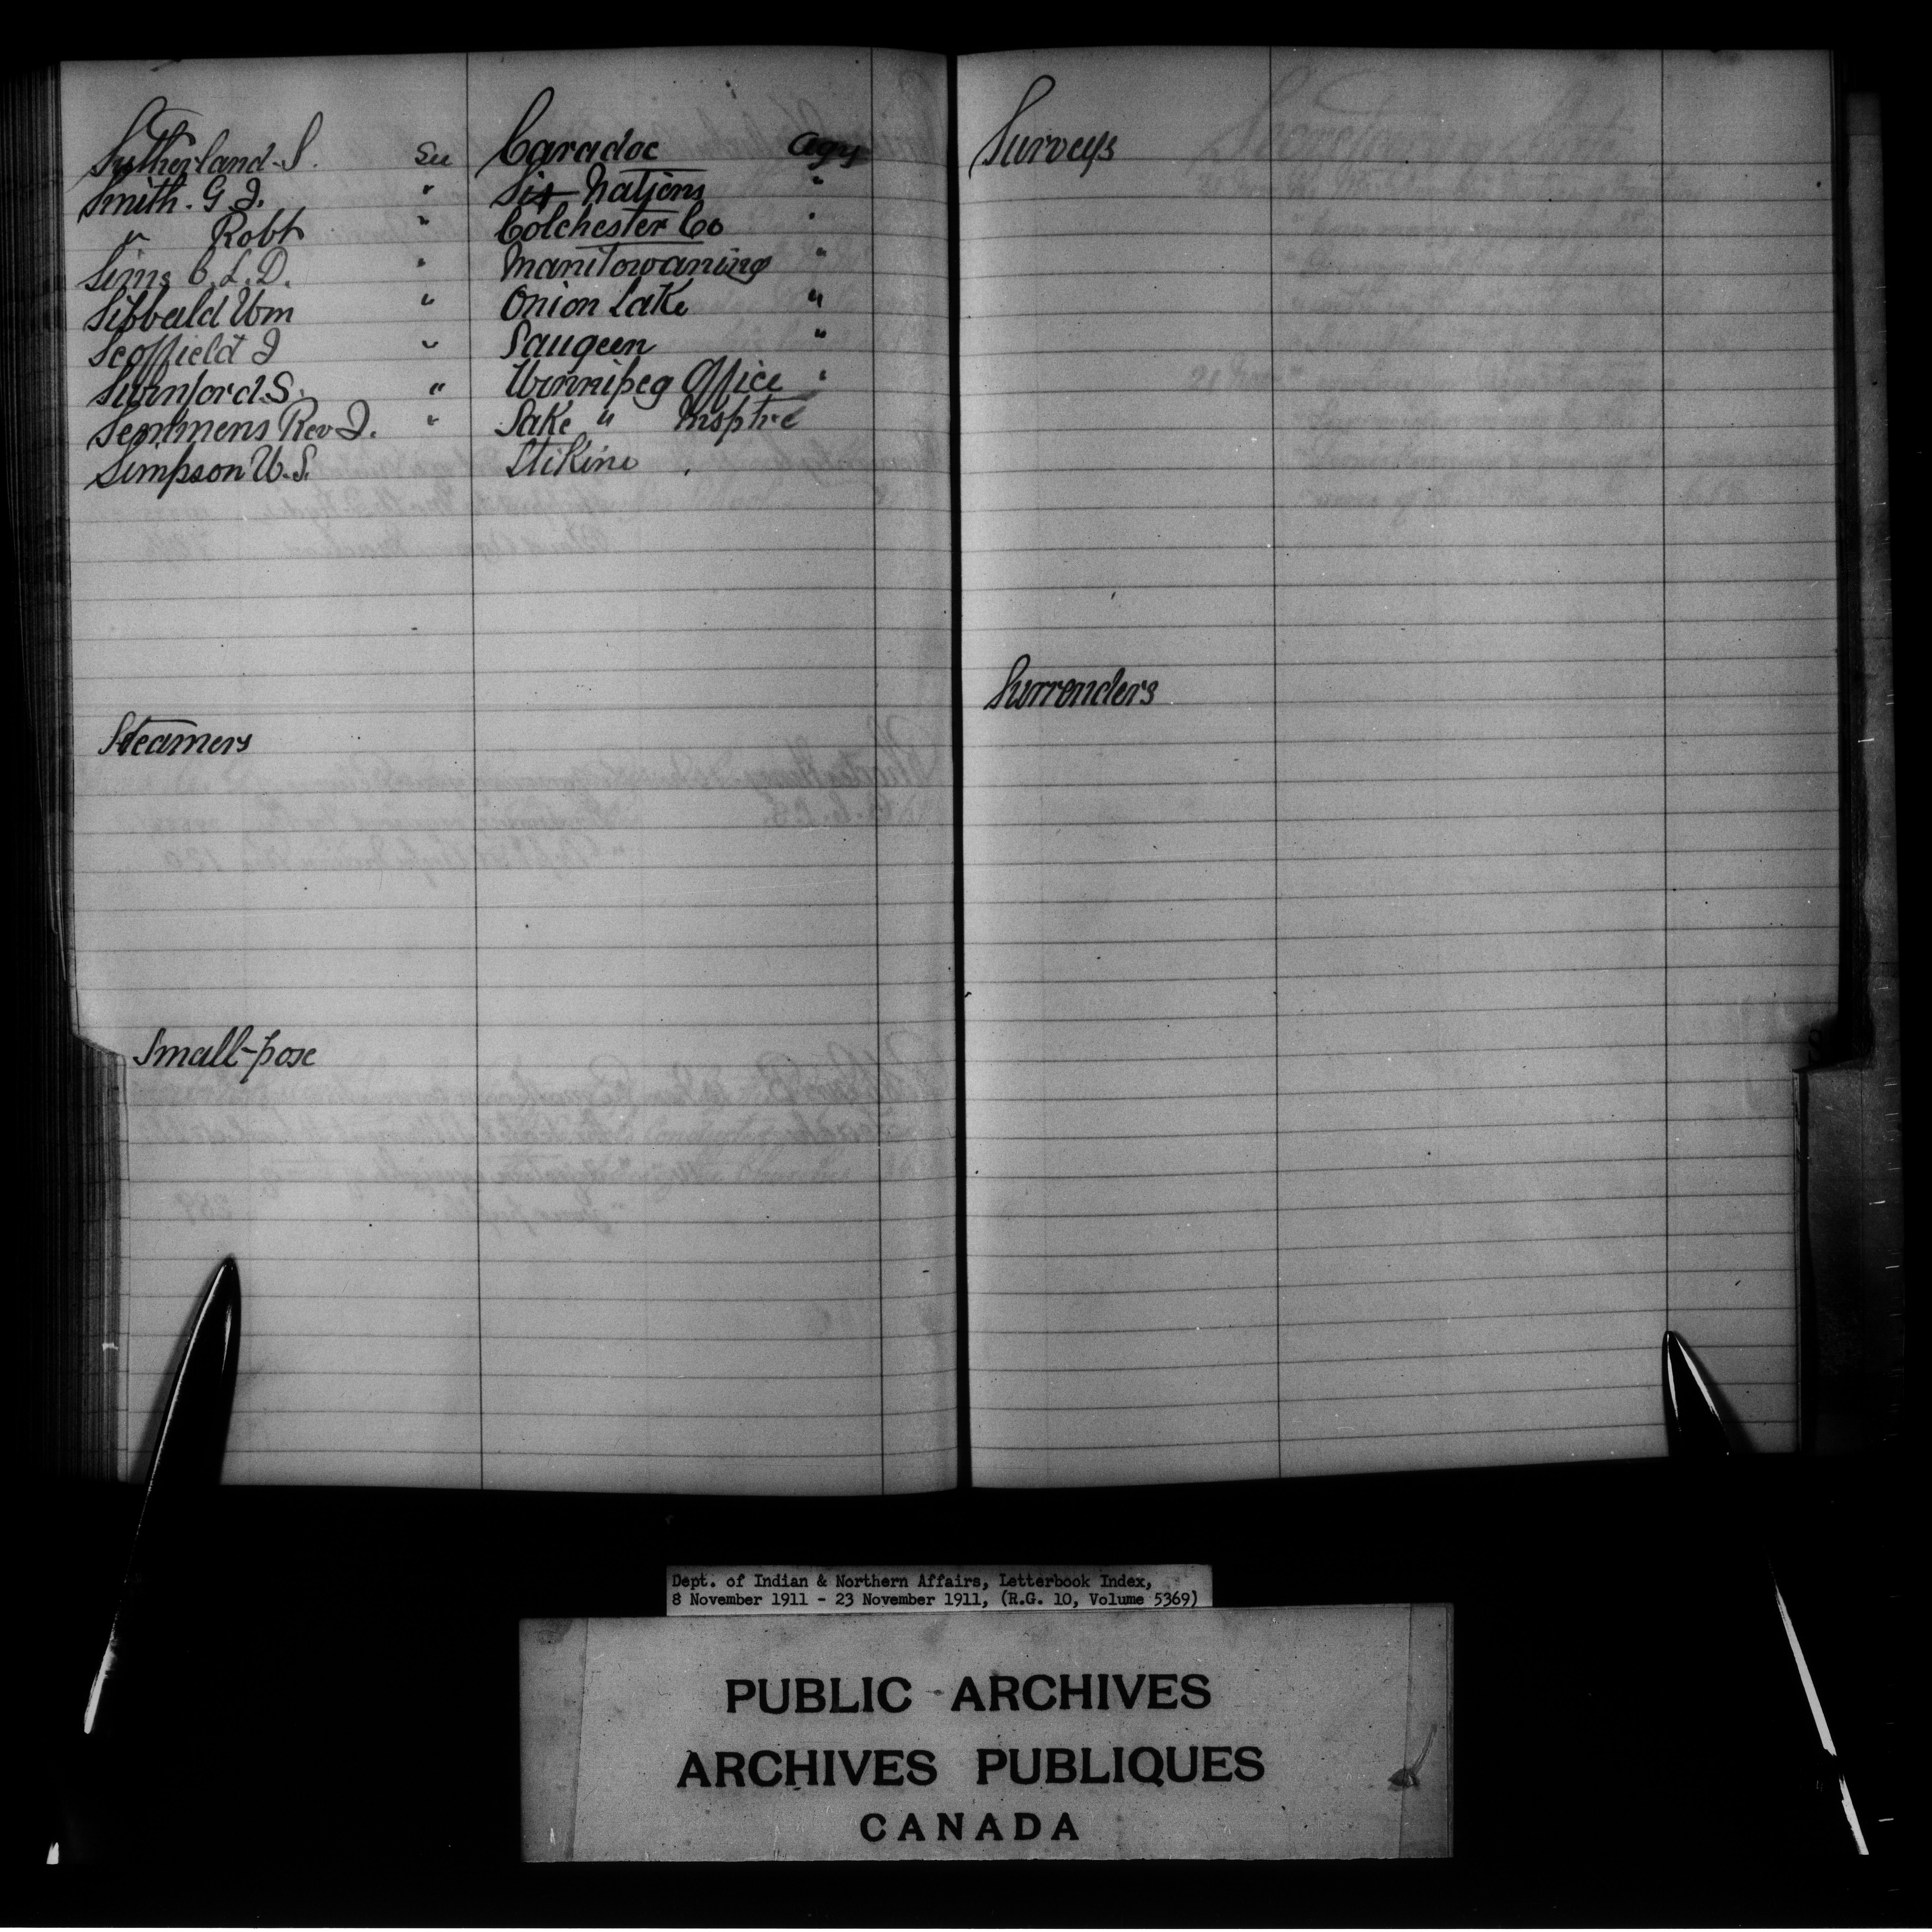 Sutherland. S. See Caradoc Agy
Smith. G. J. " Six Nations "
" Robt " Colchester Co "
Sims C. L. D. " Manitowaning "
Sibbald Wm " Onion Lake "
Scoffield J " Saugeen "
Swinford S. " Winnipeg Office "
Semmens Rev J. " Lake " Insptre
Simpson W. S. Stikine "
Steamers
Small-pox
Surveys
Surrenders
S
Dept. of Indian & Northern Affairs, Letterbook Index,
8 November 1911 - 23 November 1911, (R.G. 10, Volume 5369)
PUBLIC ARCHIVES
ARCHIVES PUBLIQUES
CANADA